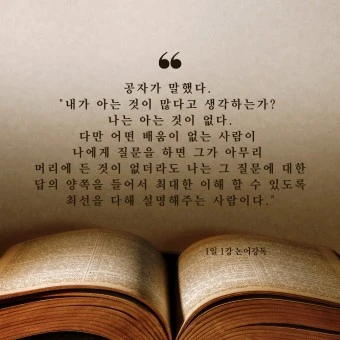 ❝
공자가 말했다.
"내가 아는 것이 많다고 생각하는가?
나는 아는 것이 없다.
다만 어떤 배움이 없는 사람이
나에게 질문을 하면 그가 아무리
머리에 든 것이 없더라도 나는 그 질문에 대한
답의 양쪽을 들어서 최대한 이해 할 수 있도록
최선을 다해 설명해주는 사람이다."
1일 1강 논어강독